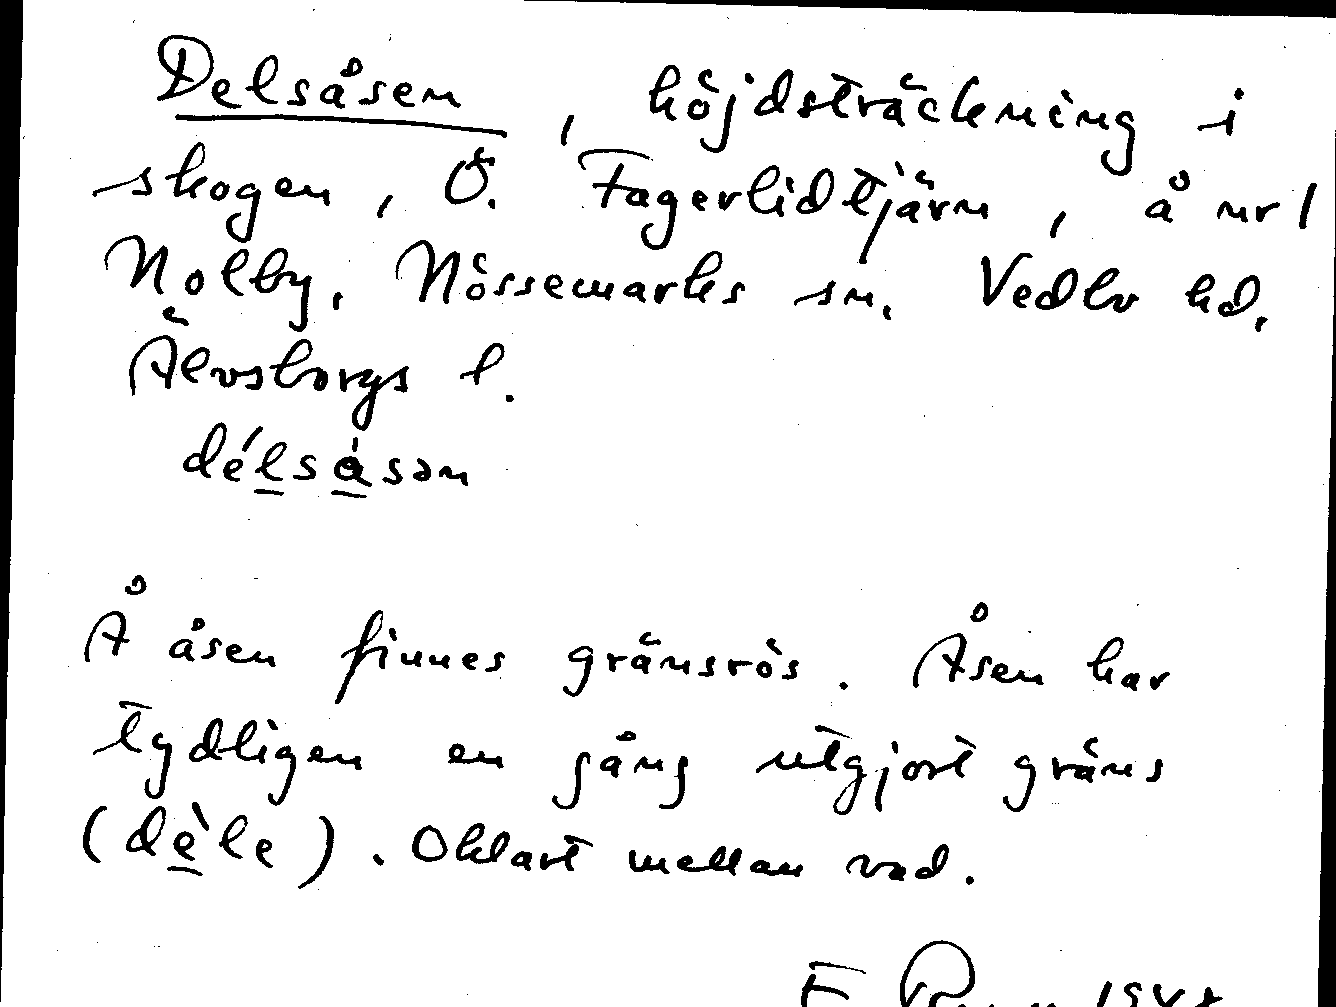 Delsåsen, höjdsträckning i
skogen, Ö. Fagerlidtjärn, å nr 1
Nolby, Nössemarks sn. Vedbo hd.
Älvsborgs l.
délsàsən
Å åsen finnes gränsrös. Åsen har
tydligen en gång utgjort gräns
(dèle). Oklart mellan vad.